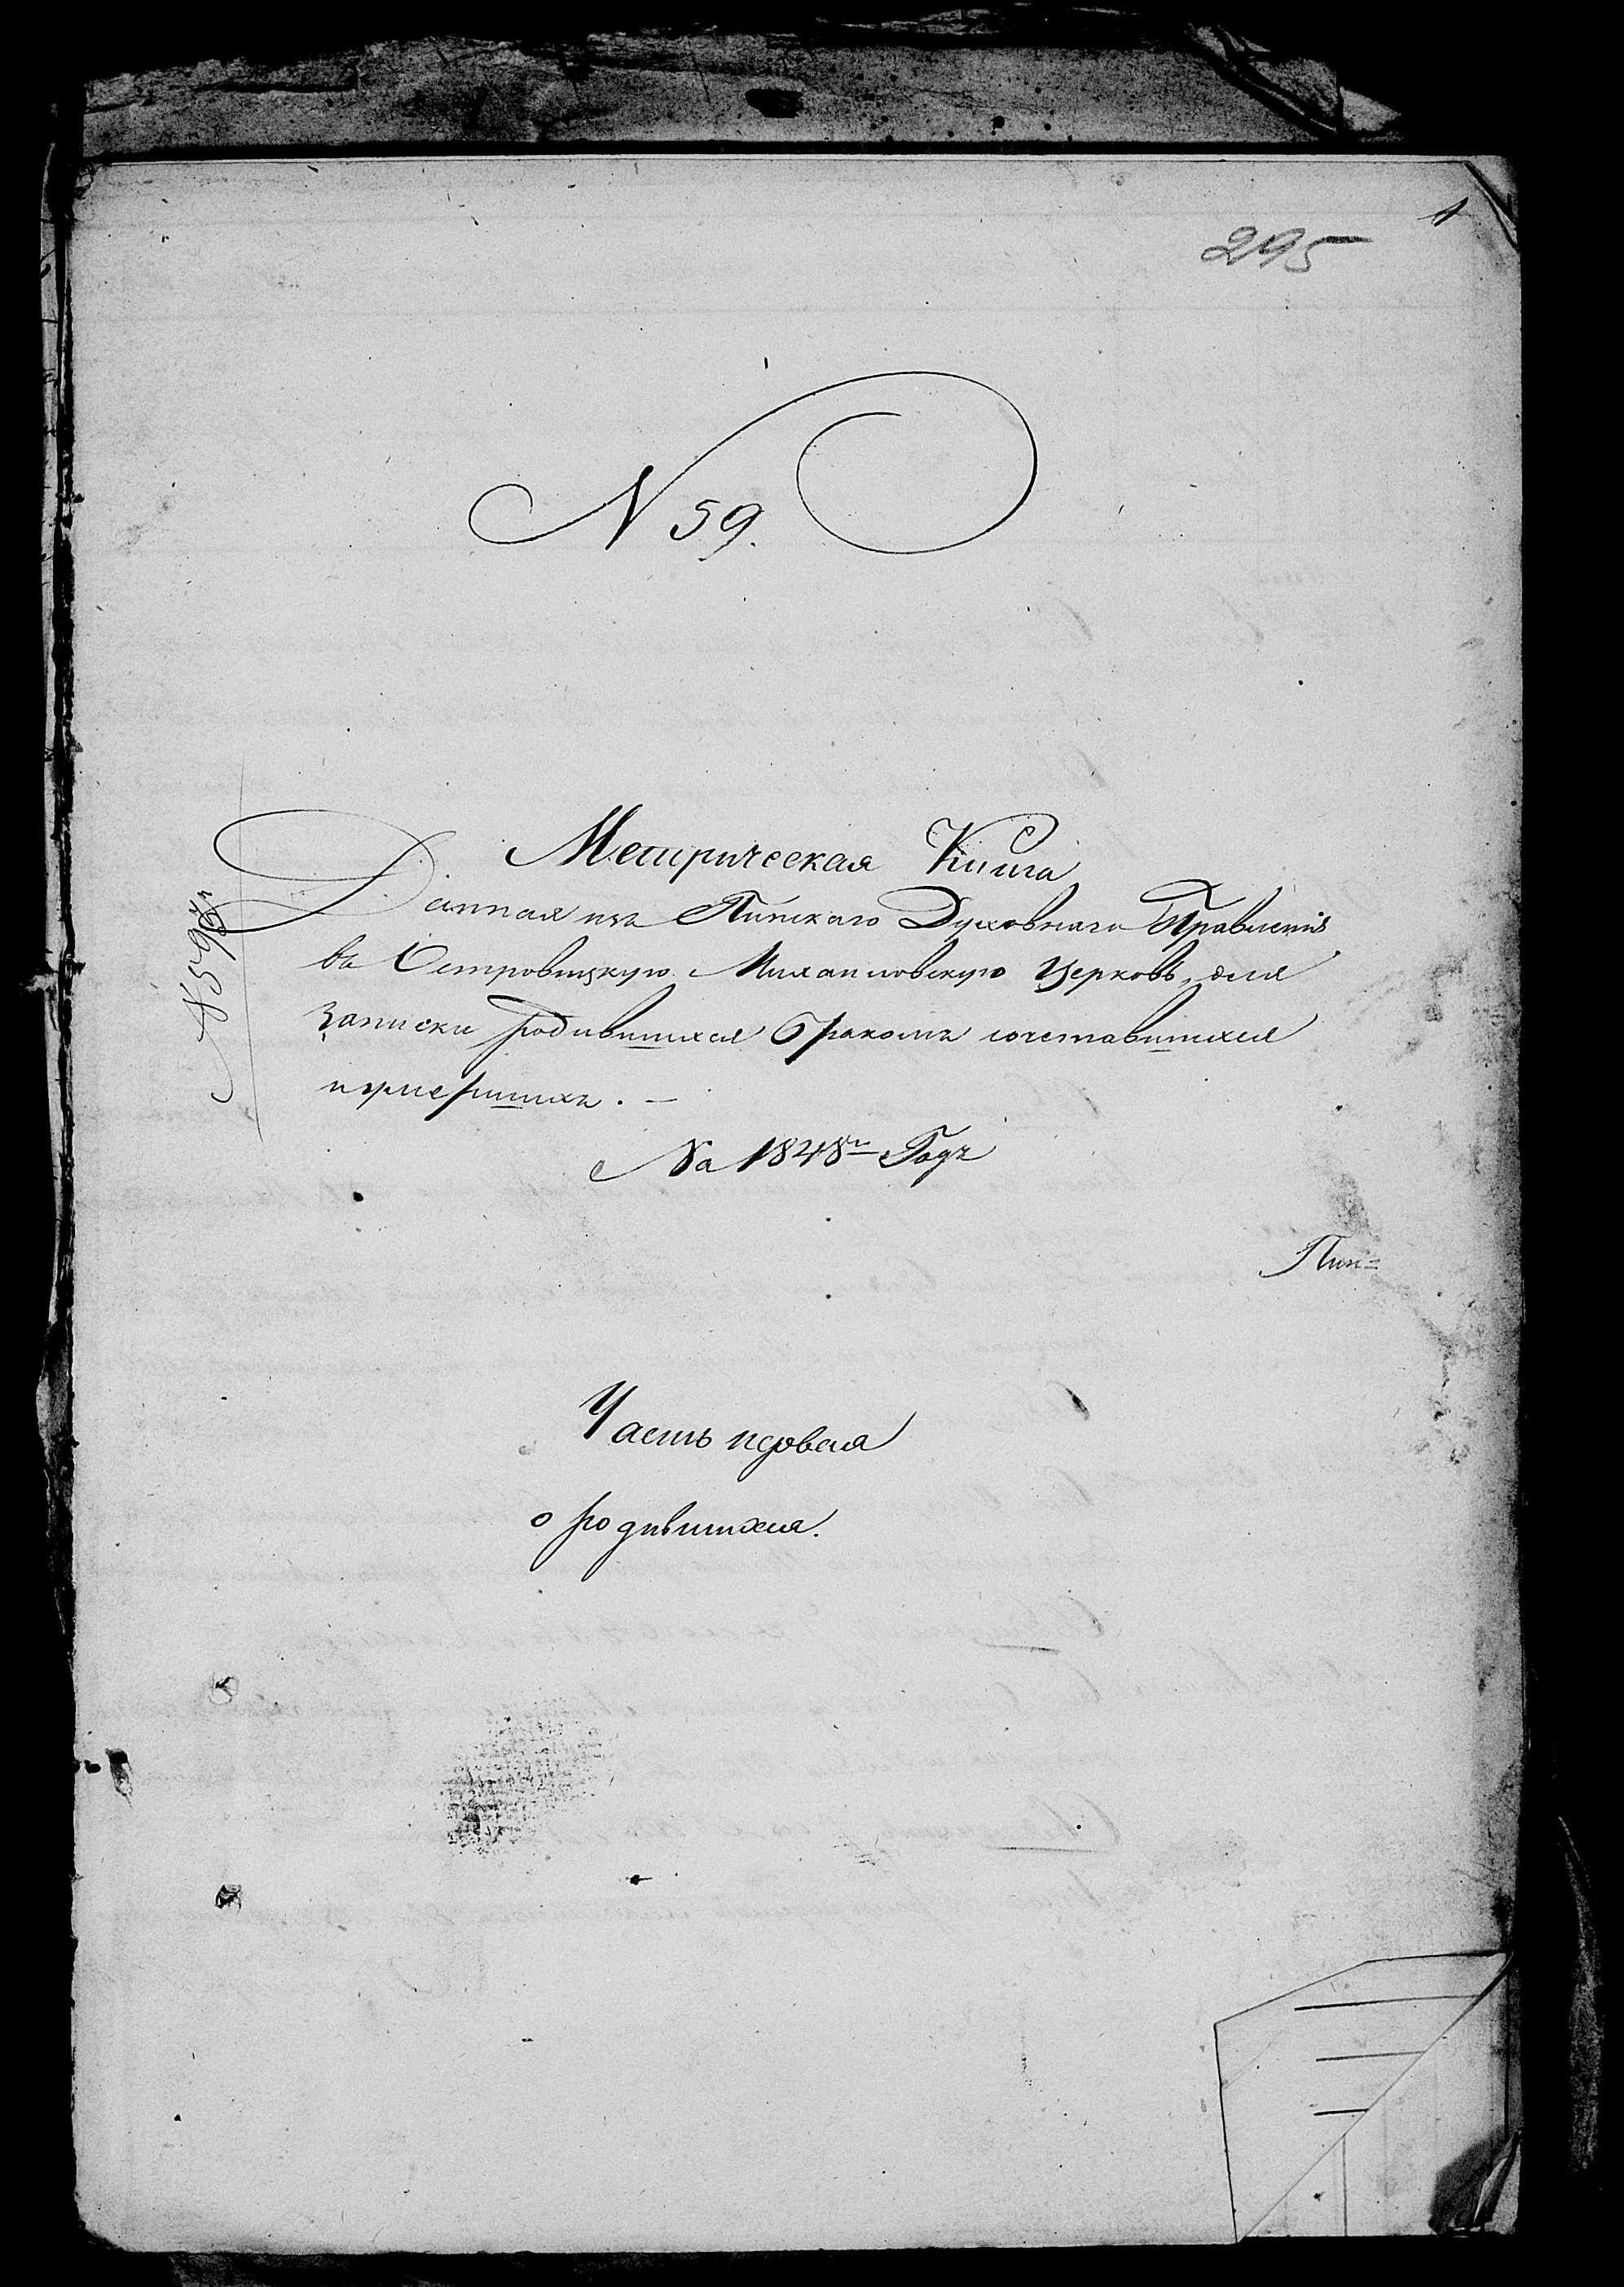 1
295
N 59.
Метрическая Книга
Данная изъ Пинскаго Духовнаго Правленія
въ Островицкую Михайловскую Церковь, для
записки родившихся бракомъ сочетавшихся
и умершихъ. —
На 1848й Годъ
Пин=
Часть первая
о родившихся.